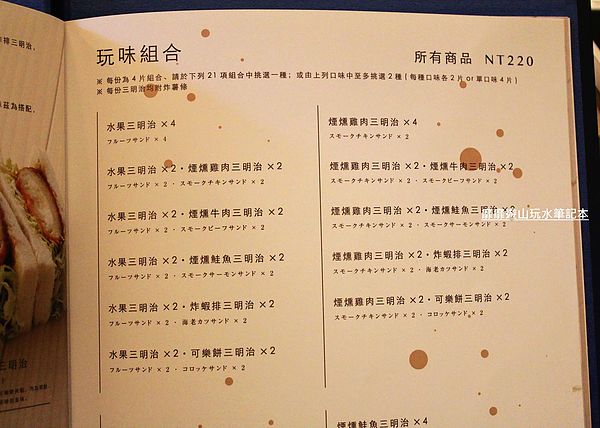 玩味組合
所有商品 NT220
※ 每份為4片組合、請於下列21項組合中挑選一種；或由上列口味中至多挑選2種(每種口味各2片 or 單口味4片)
※ 每份三明治均附炸薯條
水果三明治 ×4
フルーツサンド × 4
水果三明治 ×2・煙燻雞肉三明治 ×2
フルーツサンド × 2 ・ スモークチキンサンド × 2
水果三明治 ×2・煙燻牛肉三明治 ×2
フルーツサンド × 2 ・ スモークビーフサンド × 2
水果三明治 ×2・煙燻鮭魚三明治 ×2
フルーツサンド × 2 ・ スモークサーモンサンド × 2
水果三明治 ×2・炸蝦排三明治 ×2
フルーツサンド × 2 ・ 海老カツサンド × 2
水果三明治 ×2・可樂餅三明治 ×2
フルーツサンド × 2 ・ コロッケサンド × 2
煙燻雞肉三明治 ×4
スモークチキンサンド × 4
煙燻雞肉三明治 ×2・煙燻牛肉三明治 ×2
スモークチキンサンド × 2 ・ スモークビーフサンド × 2
煙燻雞肉三明治 ×2・煙燻鮭魚三明治 ×2
スモークチキンサンド × 2 ・ スモークサーモンサンド × 2
煙燻雞肉三明治 ×2・炸蝦排三明治 ×2
スモークチキンサンド × 2 ・ 海老カツサンド × 2
煙燻雞肉三明治 ×2・可樂餅三明治 ×2
スモークチキンサンド × 2 ・ コロッケサンド × 2
煙燻鮭魚三明治 ×4
排三明治,
為搭配,
三明治
遊山玩水筆記本